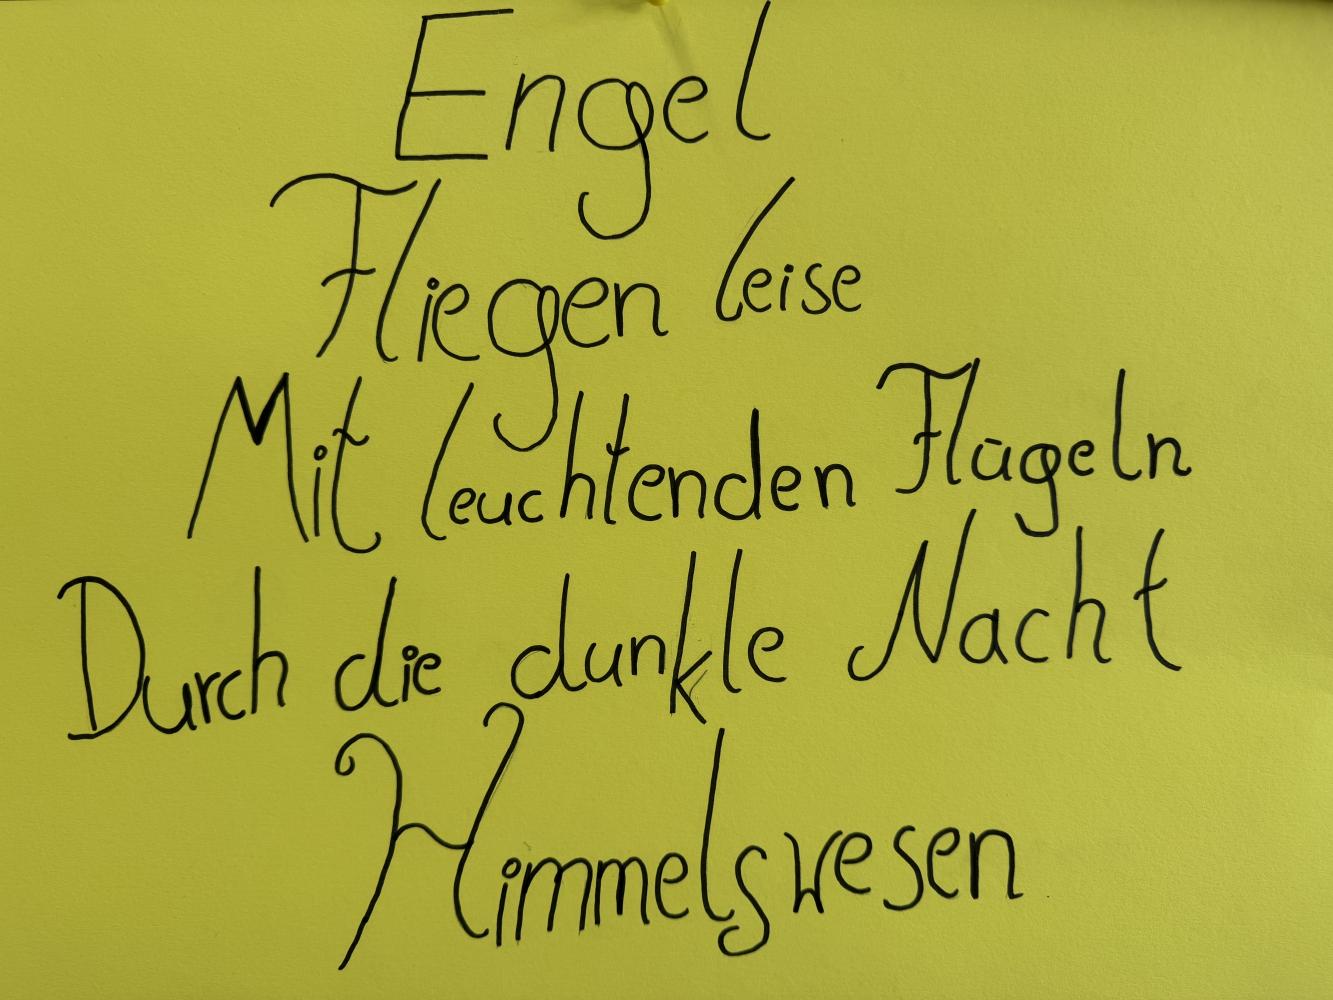 Engel
Fliegen leise
Mit leuchtenden Flügeln
Durch die dunkle Nacht
Himmelswesen